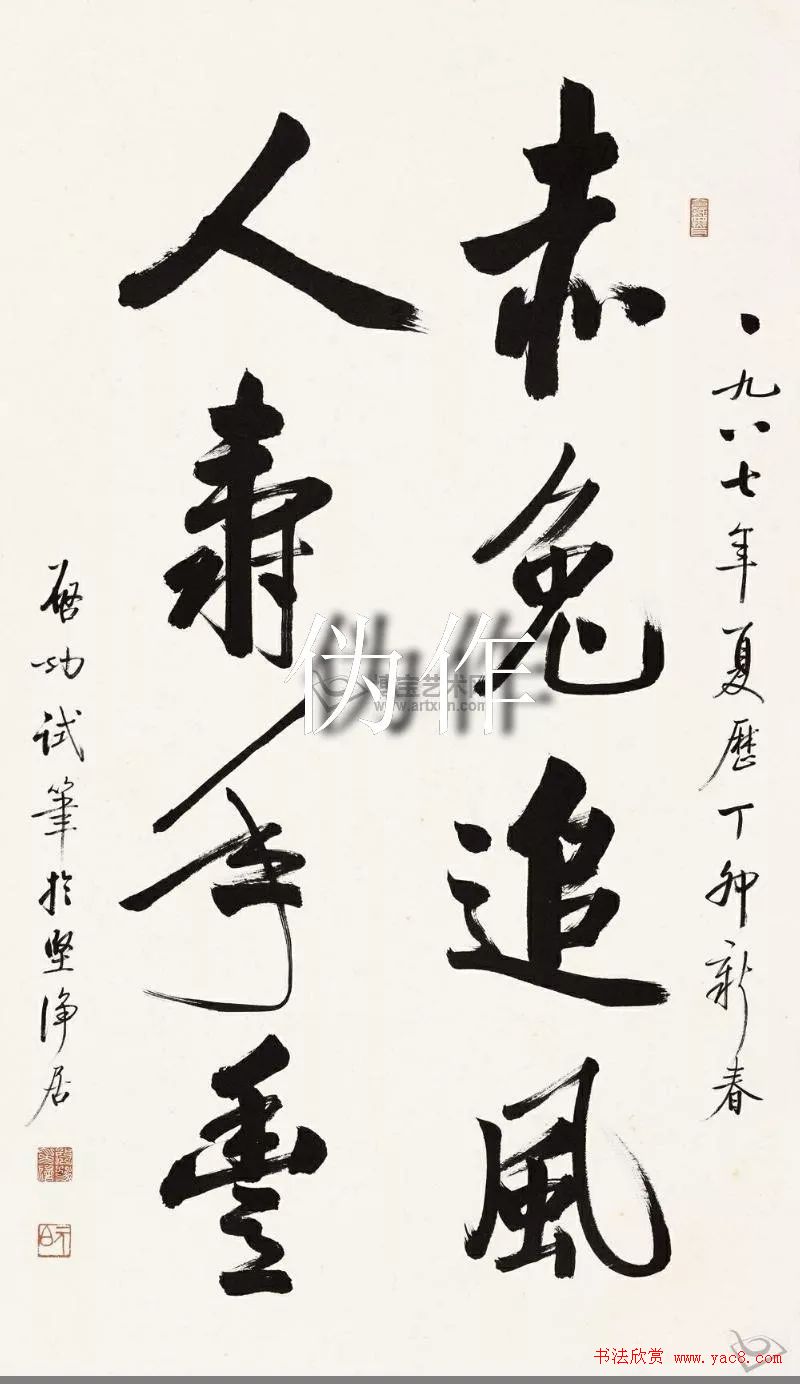 一九八七年夏历丁卯新春
赤兔追風
人壽年豊
启功试筆於堅净居
伪作
博宝艺术网
www.artxun.com
书法欣赏 www.yac8.com